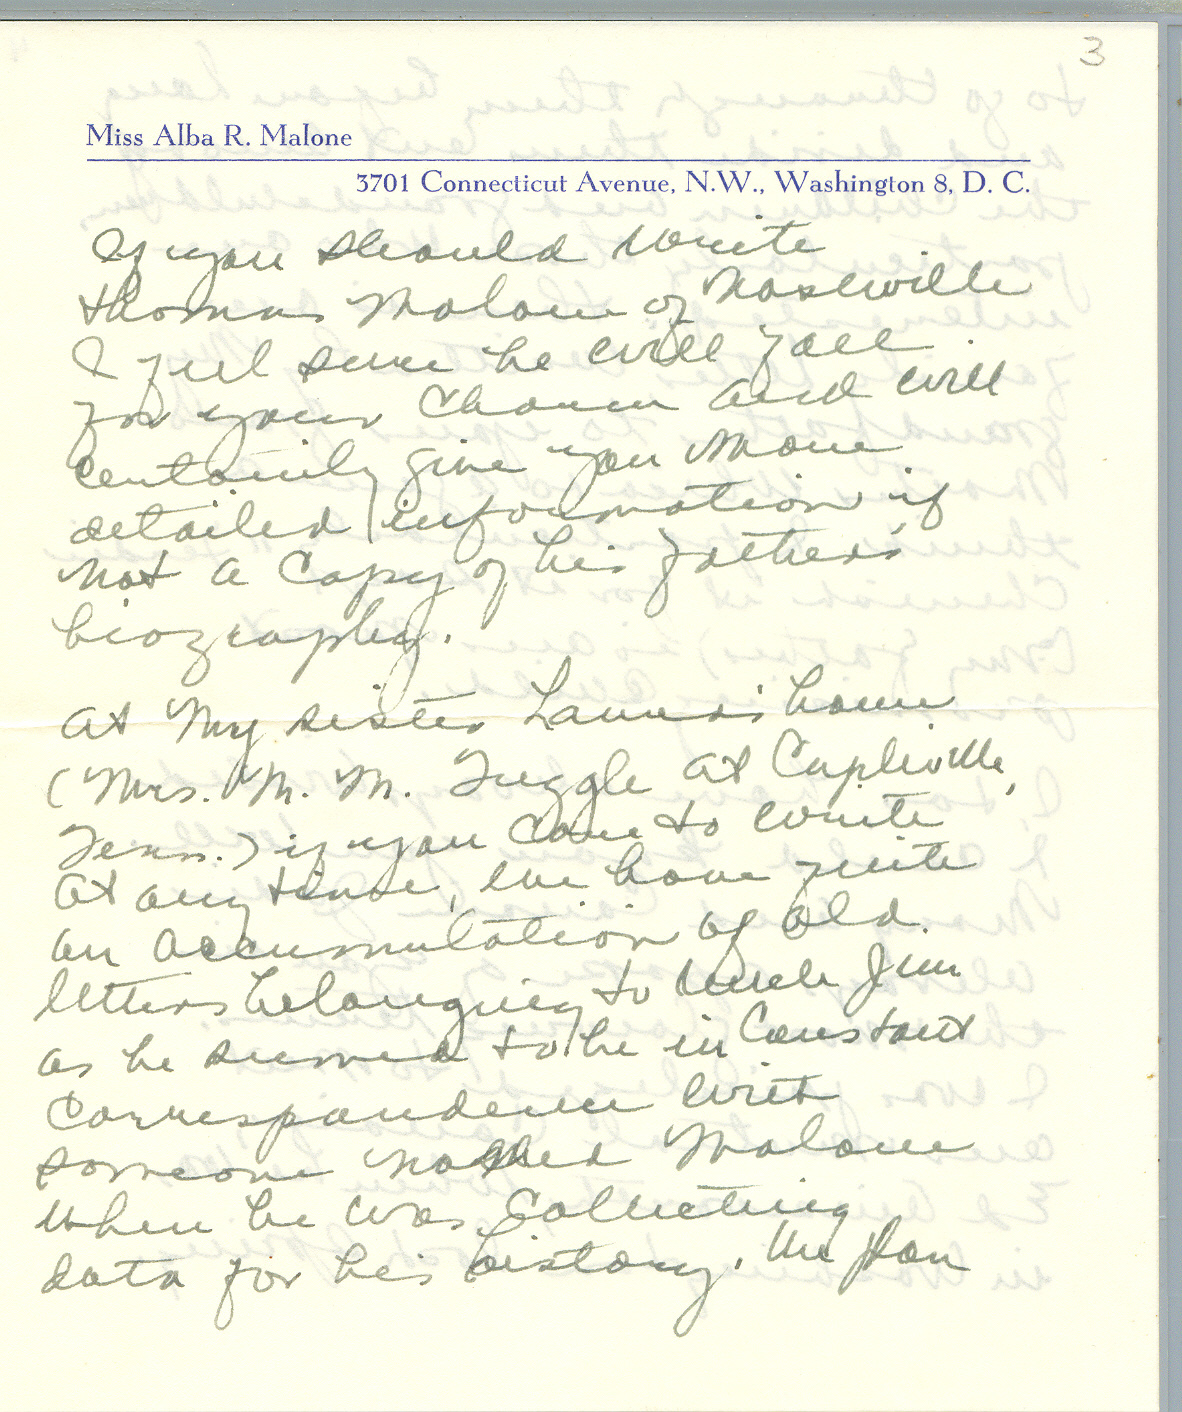 3
Miss Alba R. Malone
3701 Connecticut Avenue, N.W., Washington 8, D. C.
If you should write
Thomas Malone of Nashville
I feel sure he will fall
for your charm and will
certainly give you more
detailed information if
not a copy of his fathers'
biography.
At my sister Laura's home
(Mrs. M. M. Tuggle at Capleville,
Tenn.) if you care to write
at any time, we have quite
an accumulation of old
letters belonging to Uncle Jim
as he seemed to be in constant
correspondence with
someone named Malone
when he was collecting
data for his history. We plan